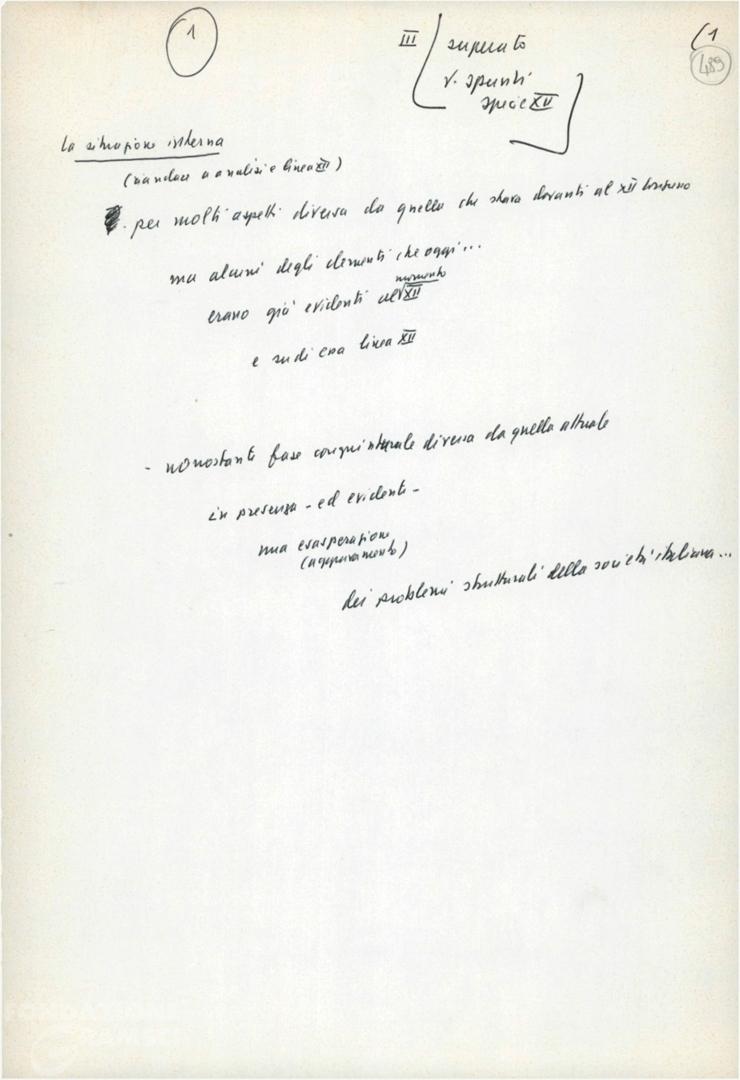 1
III superato
v. spunti
specie XII
(1
489
La situazione interna
(riandare a analisi e linea XII)
- per molti aspetti diversa da quella che stava davanti al XII
ma alcuni degli elementi che oggi...
erano già evidenti al momento XII
e su di essa linea XII
- nonostante fase congiunturale diversa da quella attuale
in presenza - ed evidente -
una esasperazione
(aggravamento)
dei problemi strutturali della società italiana...
FONDAZIONE
GRAMSCI